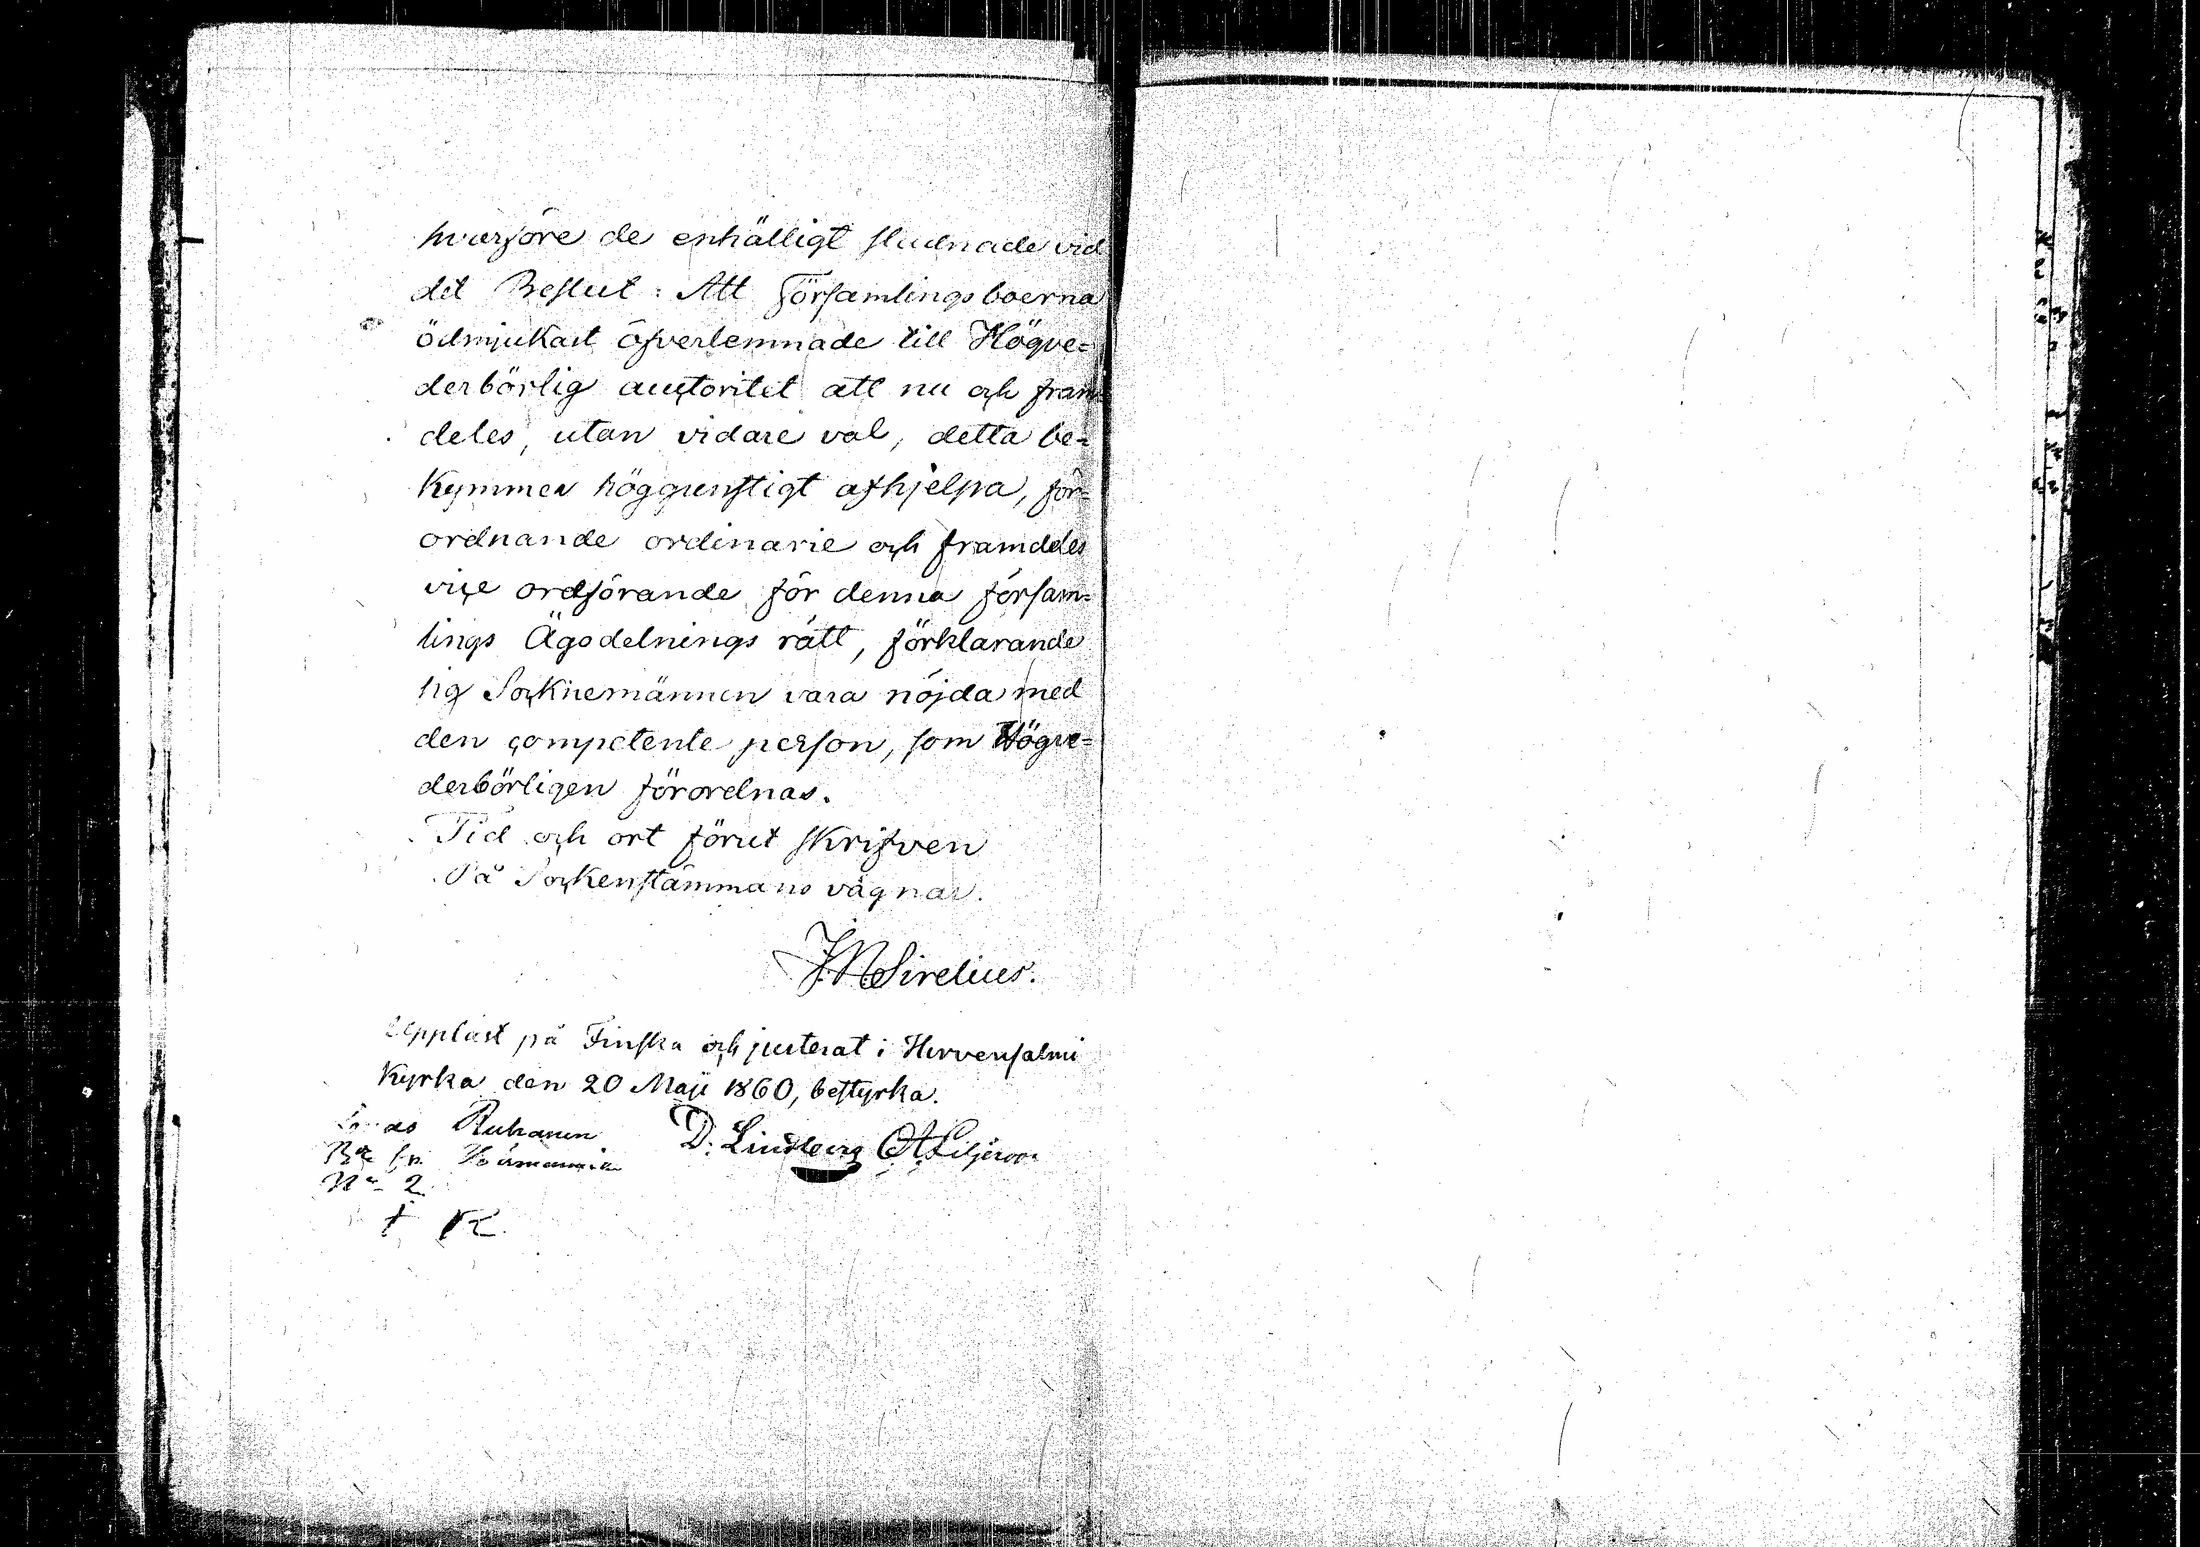 hvarföre de enhälligt studnade vid
det Beslut: Att Församlingsboerna
ödmjukast öfverlemnade till Högve=
derbörlig auctoritet att nu och fram=
deles, utan vidare val, detta be=
kymmer höggunstigt afhjelpa, för=
ordnande ordinarie och framdeles
vice ordförande för denna försam=
lings Ägodelnings rätt, förklarande
sig Socknemännen vara nöjda med
den competente person, som Högve=
derbörligen förordnas.
Tid och ort förut skrifven
På Sockenstämmans vägnar.
J.N. Sirelius.
Uppläst på Finska och justerat i Hirvensalmi
Kyrka den 20 Maji 1860, bestyrka.
Ruhanen D. Lindberg
N° 2